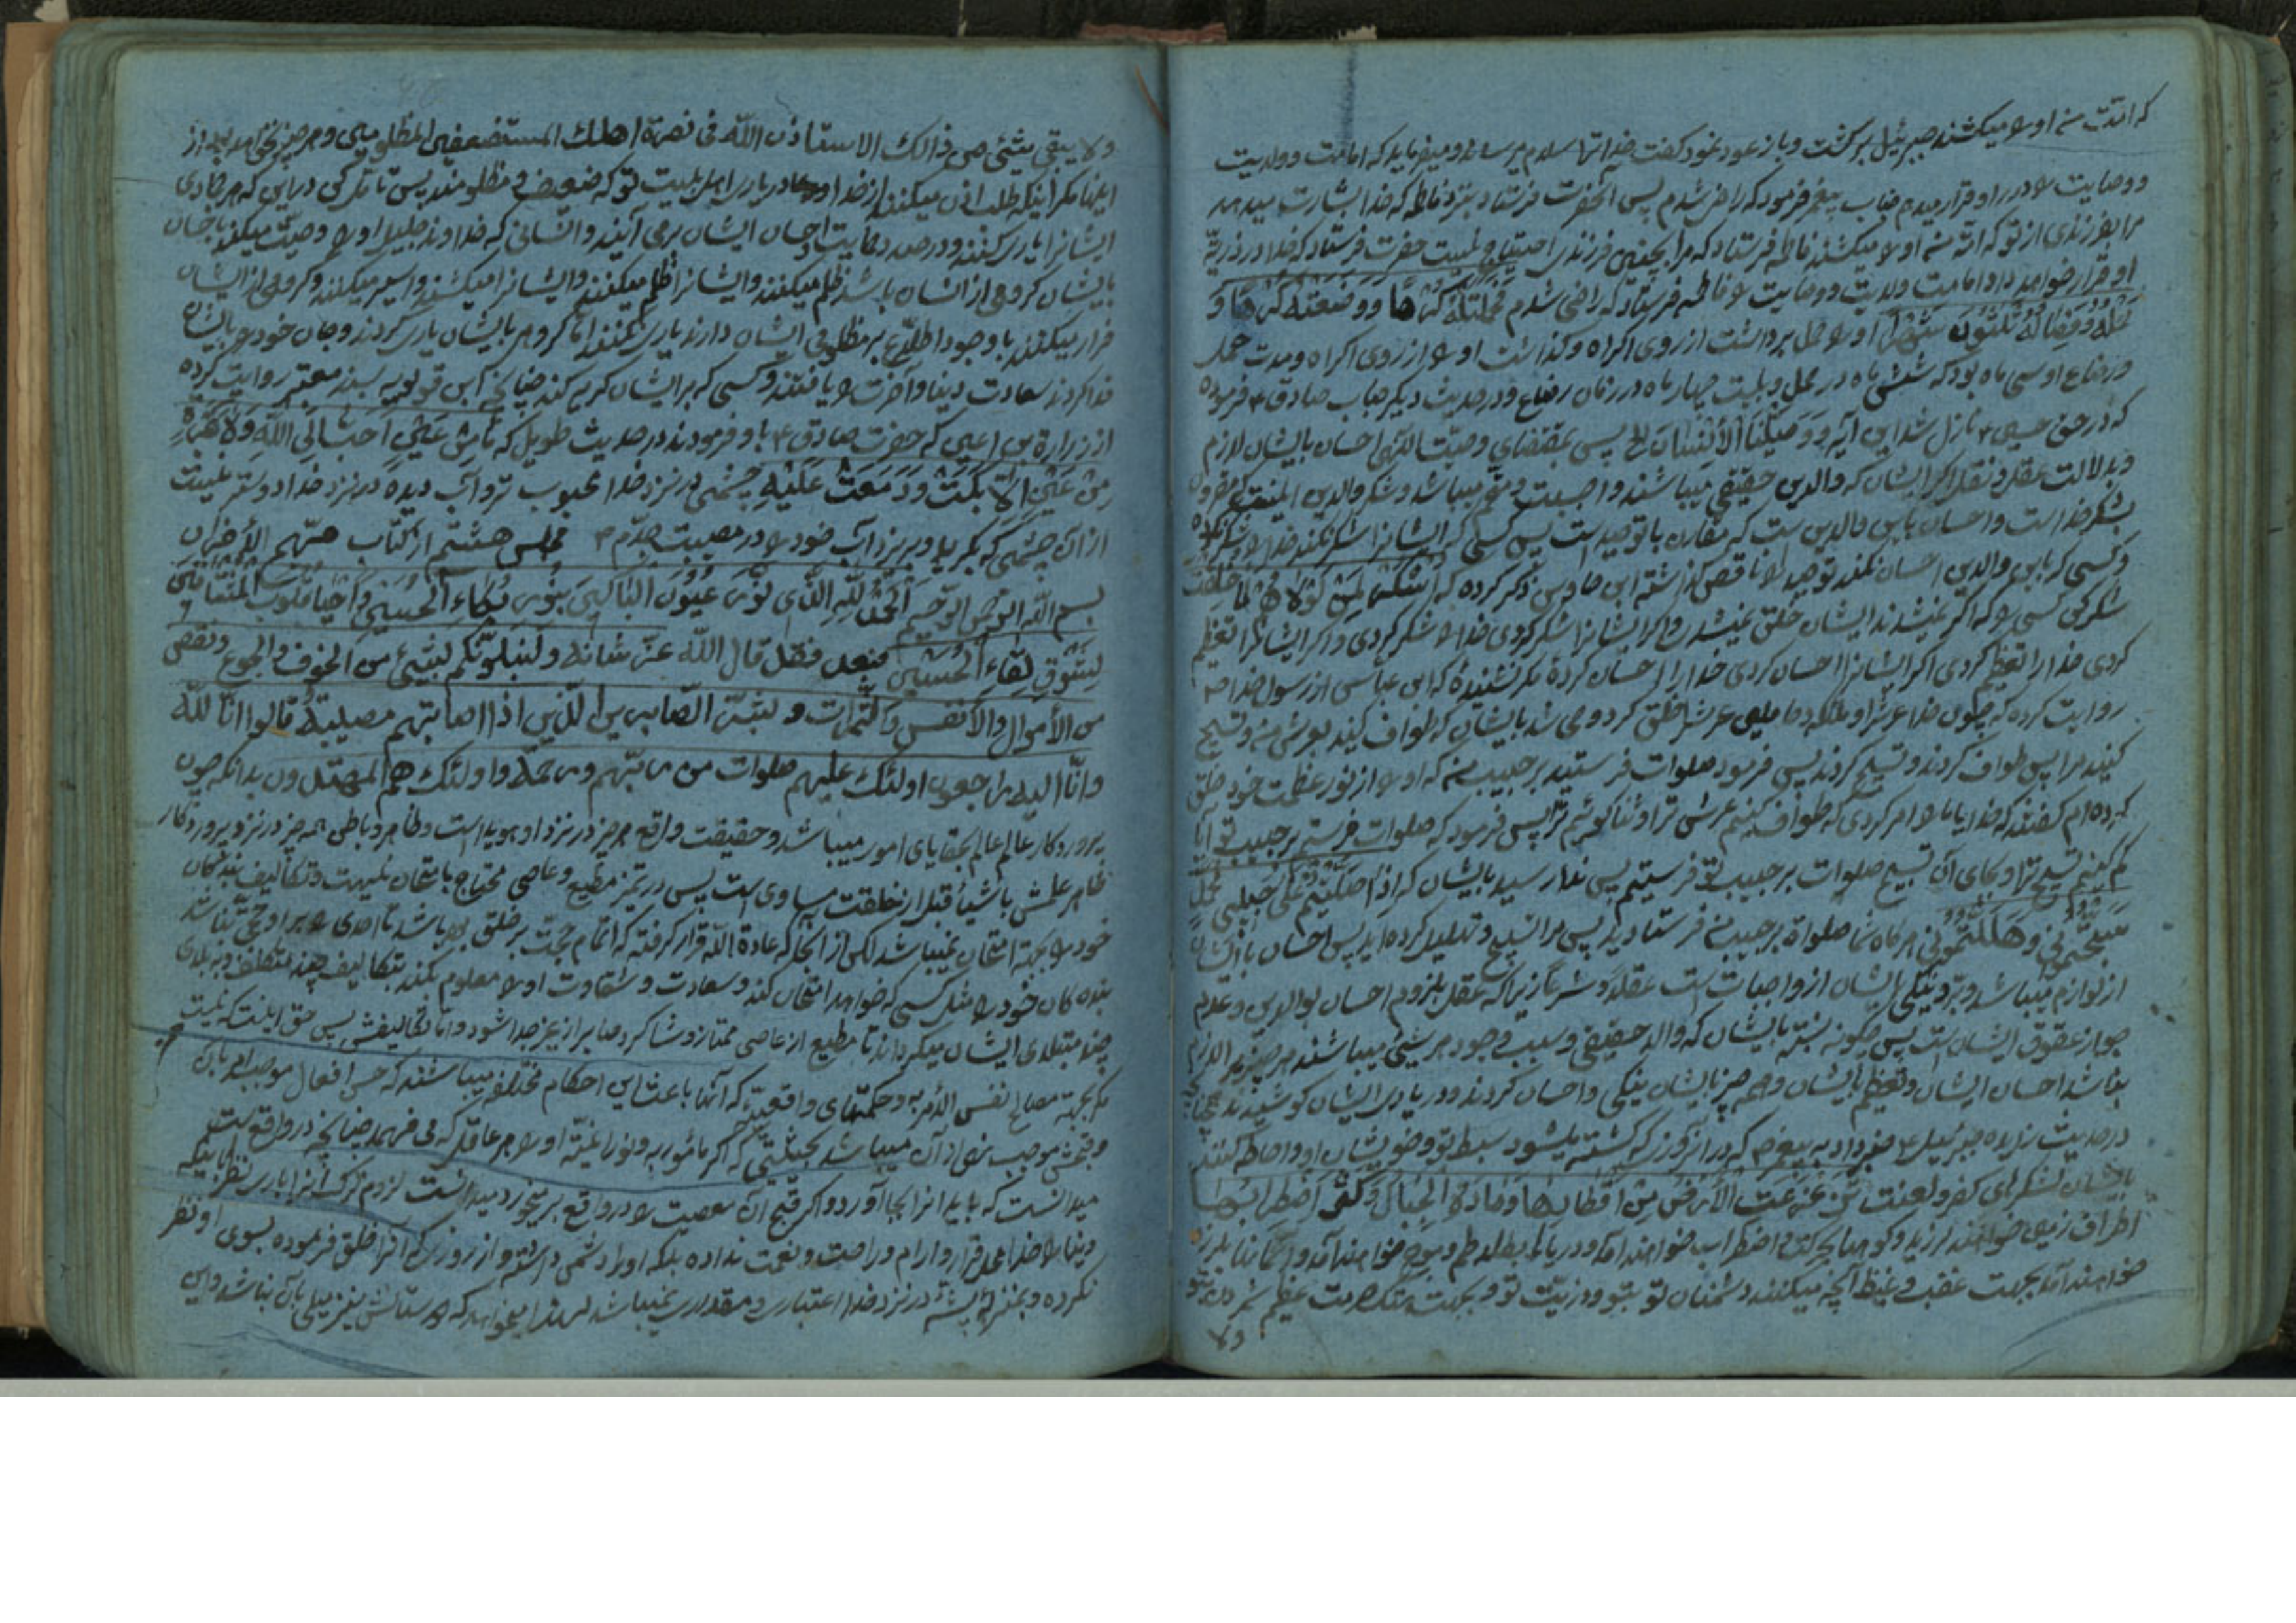 که امتت منه او را میکشند جبرئیل برکشت و باز عود نمود کفت خدا ترا سلام میرساند و میفرماید که امامت و ولایت
و وصایت را در او قرار میدهم جناب پیغمبر فرمود که راضی شدم پس آنحضرت فرستاد بنزد فاطمه که خدا بشارت میدهد
مرا بفرزندی از تو که امّة منه او را میکشند فاطمه فرستاد که مرا بچنین فرزندی احتیاج نیست حضرت فرستاد که خدا در ذریّه
او قرار خواهد داد امامت ولایت و وصایت را فاطمه فرستاد که راضی شدم فَحَمَلَتْهُ كُرْهًا وَوَضَعَتْهُ كُرْهًا وَ
حَمْلُهُ وَفِصَالُهُ ثَلٰثُونَ شَهْرًا او را حمل برداشت از روی اکراه و کذاشت او را از روی اکراه و مدت حمل
و رضاع او سی ماه بود که شش ماه در حمل و بیست چهار ماه در زمان رضاع و در حدیث دیکر جناب صادق ع فرموده
که در حق حسین ع نازل شد این آیه وَوَصَّيْنَا الْأِنْسَانَ الخ پس بمقتضای وصیّت الٓهی احسان بایشان لازم
و بدلالت عقل و نقل اکر ایشان که والدین حقیقی میباشند واجبست و متحتم میباشد و شکر والدین
بشکر خداست و احسان باین والدین ست که مقارن با توحید است پس کسی که ایشانرا شکر نکند خدا را شکر نکرده
و کسی که باین والدین احسان نکند توحید را ناقص کذاشته این ماوس ذکر کرده که
شکر کن کسی را که اکر نمیشدند ایشان خلق نمیشدی و اکر ایشانرا شکر کردی خدا را شکر کردی و اکر ایشانرا تعظیم
کردی خدا را تعظیم کردی اکر ایشانرا احسان کردی خدا را احسان کرده مکر نشنیدهٔ که ابن عباس از رسول خدا ص
روایت کرده که چون خدا عرش را و ملائکه و حاملین عرش را خلق کرد وحی شد بایشان که طواف کنید بعرش منه و تسبیح
کنید مرا پس طواف کردند و تسبیح کردند پس فرمود صلوات فرستید بر حبیب منه که او را از نور عظمت خود خلق
کرده ام کفتند که خدایا ما را امر کردی که طواف کنیم عرش ترا و ثنا کوئیم ترا پس فرمود که صلوات فرستید بر حبیب تو آیا
کم کنیم تسبیح ترا و بجای آن تسبیح صلوات بر حبیب تو فرستیم پس ندا رسید بایشان که اِذَا صَلَّيْتُمْ عَلٰی حَبِيبِي
سَبَّحْتُمُونِي وَهَلَّلْتُمُونِي هر کاه شما صلواة بر حبیب منه فرستادید پس مرا تسبیح و تهلیل کرده اید پس احسان با ایشان
از لوازم میباشد و برّ و نیکی بایشان از واجبات ست عقلاً و شرعاً زیرا که عقل بلزوم احسان بوالدین و عدم
جواز عقوق ایشان ست پس چکونه نسبت بایشان که والد حقیقی و سبب وجود هر شیئی میباشند
بنا شد احسان ایشان و تعظیم بایشان و همه چیز بایشان نیکی و احسان کردند و در یاری ایشان کوشیدند چنانچه
در حدیث زایده جبرئیل ع خبر داد به پیغمبر ص که در آنروزی که کشته میشود سبط تو و خویشان او و احاطه کنند
بایشان لشکرهای کفر و لعنت تَزَعْزَعَتِ الْأَرْضُ مِنْ أَقْطَارِهَا وَمَادَتِ الْجِبَالُ وَكَثُرَ اضْطِرَابُهَا
اطراف زمین خواهند لرزید و کوهها بحرکت و اضطراب خواهند آمد و دریاها بتلاطم و موج خواهند آمد
خواهند آمد بجهت غضب و غیظ آنچه میکنند دشمنان تو بتو و ذریّت تو و بجهت هتک حرمت عظیم
ولا
ولا یبقی شیئ من ذالك الا استاذن الله فی نصرة اهلك المستضعفین المظلومین و هر چیز
اینها مکر اینکه طلب اذن میکنند از خداوند در یاری اهل بیت تو که ضعیف و مظلومند پس تامّل کن در این که هر جمادی
ایشانرا یاری کنند و در صدد حمایت و احسان ایشان بر می آیند و انسانی که خداوند جلیل او را وصیّت میکند باحسان
بایشان کروهی از انسان باشد ظلم میکنند و ایشانرا ظلم میکنند و ایشانرا میکشند و اسیر میکنند و کروهی از ایشان
فرار میکنند با وجود اطلاع بر مظلومی ایشان دارند یاری نکنند امّا کروهی بایشان یاری کردند و جان خود را بایشان
فدا کردند سعادت دنیا و آخرت را یافتند و کسی که بر ایشان کریه کند چنانچه ابن قولویه بسند معتبر روایت کرده
از زرارة بن اعین که حضرت صادق ع باو فرمودند در حدیث طویل که مَا مِنْ عَيْنٍ اَحَبُّ اِلَی اللهِ وَلَا عَبْرَةٍ
مِنْ عَيْنٍ اِلَّا بَكَتْ وَدَمَعَتْ عَلَيْهِ چشمی در نزد خدا محبوب تر و آب دیده در نزد خدا دوستتر نیست
از آن چشمی که بکرید و بریزد آب خود را در مصیبت جدّم ع مجلس هشتم از کتاب مهیّج الأحزان
بسم الله الرحمن الرحیم اَلْحَمْدُ لِلّٰهِ الَّذِي نَوَّرَ عُيُونَ الْبَاكِينَ بِنُورِ بُكَاءِ الْحُسَيْنِ وَاَحْيَا قُلُوبَ الْمُشْتَاقِينَ
لِشَوْقِ لِقَاءِ الْحُسَيْنِ فبعد فقد قال الله عزّ شانه ولنبلونّكم بشیئ من الخوف والجوع ونقص
من الأموال والأنفس والثمرات وبشّر الصّابرین الّذین اذا اصابتهم مصیبة قالوا انّا لله
وانّا الیه راجعون اولئك علیهم صلوات من ربّهم ورحمة واولئك هم المهتدون بدانکه چون
پروردکار عالم عالم بخفایای امور میباشد و حقیقت واقع هر چیز در نزد او هویداست و ظاهر و باطن همه چیز در نزد پروردکار
ظاهر علمش باشیاء قبل از خلقت مساوی است پس در تمیز مطیع و عاصی محتاج بامتحان نیست و تکالیف بندکان
خود را بجهة امتحان نمیباشد لکن از آنجا که عادة الله قرار کرفته که اتمام حجّت بر خلق بوده باشد تا احدی را بر او حجّتی نباشد
بنده کان خود را مثل کسی که خواهد امتحان کند و سعادت و شقاوت او را معلوم کند بتکالیف چند مکلف و به بلای
چند مبتلای ایشان میکرداند تا مطیع از عاصی ممتاز و شاکر و صابر از غیر جدا شود و امّا تکالیفش پس حق اینست که نیست
مکر بجهة مصالح نفس الأمریه و حکمتهای واقعیّه که آنها باعث این احکام مختلفه میباشند که حسن افعال موجب امر بآن
و قبحش موجب نهی از آن میباشد بحیثیّتی که اکر مأمور به
میدانست که باید انرا بجا آورد و اکر قبح آن معصیت را در واقع بر میخورد میدانست لزوم ترک آنرا
دنیا را خدا محل قرار و آرام و راحت و نعمت نداده بلکه اورا دشمن داشته و از روزی که آنرا خلق فرموده بسوی او نظر
نکرده و بمنزله پشّهٔ در نزد خدا اعتباری و مقداری نمیباشد لهذا